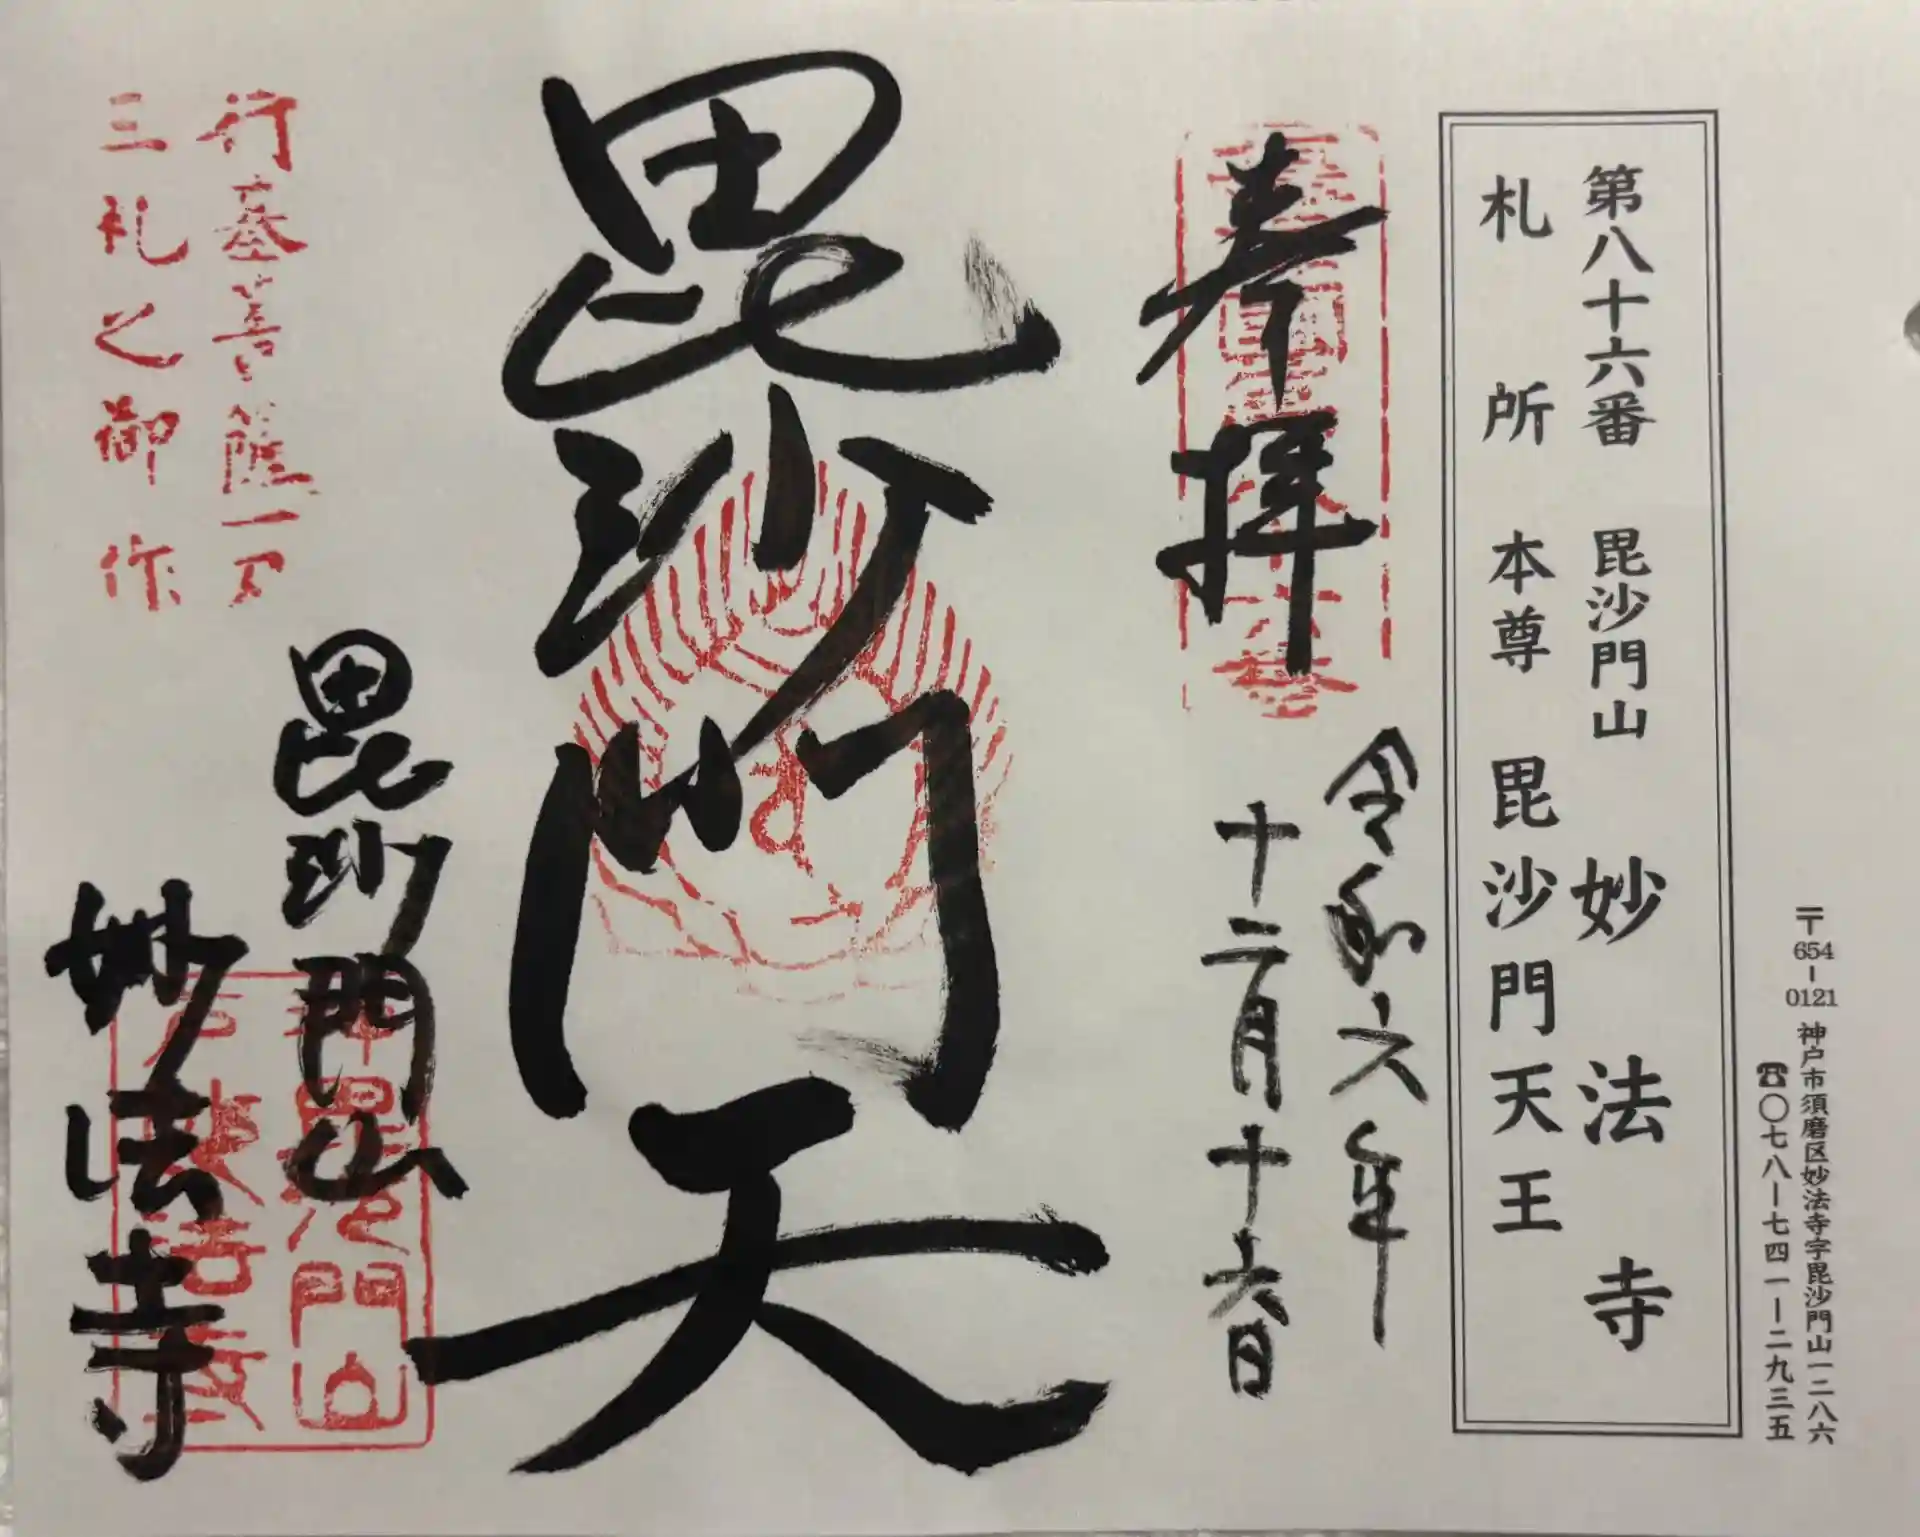 〒654-0121 神戸市須磨区妙法寺字毘沙門山一二八六
☎〇七八ー七四一ー二九三五
第八十六番 毘沙門山 妙法寺
札所本尊 毘沙門天王
奉拝
令和六年
十二月十六日
毘沙門天
行基菩薩一刀
三礼之御作
毘沙門山
妙法寺